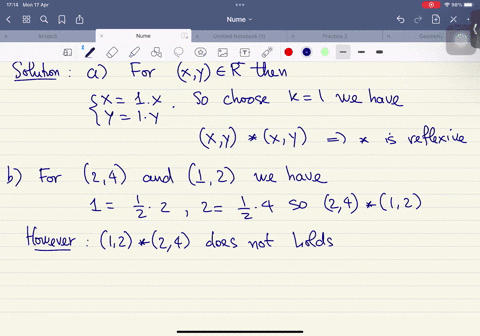 17:14 Mon 17 Apr
98%
Nume
Nume
Untitled Notebook (1)
Practice 2
Solution : a) For (x,y) ∈ R² then
{ x = 1.x
{ y = 1.y . So choose k = 1 we have
(x,y) * (x,y) => * is reflexive
b) For (2,4) and (1,2) we have
1 = 1/2 . 2 , 2 = 1/2 . 4 so (2,4) * (1,2)
However : (1,2) * (2,4) does not holds